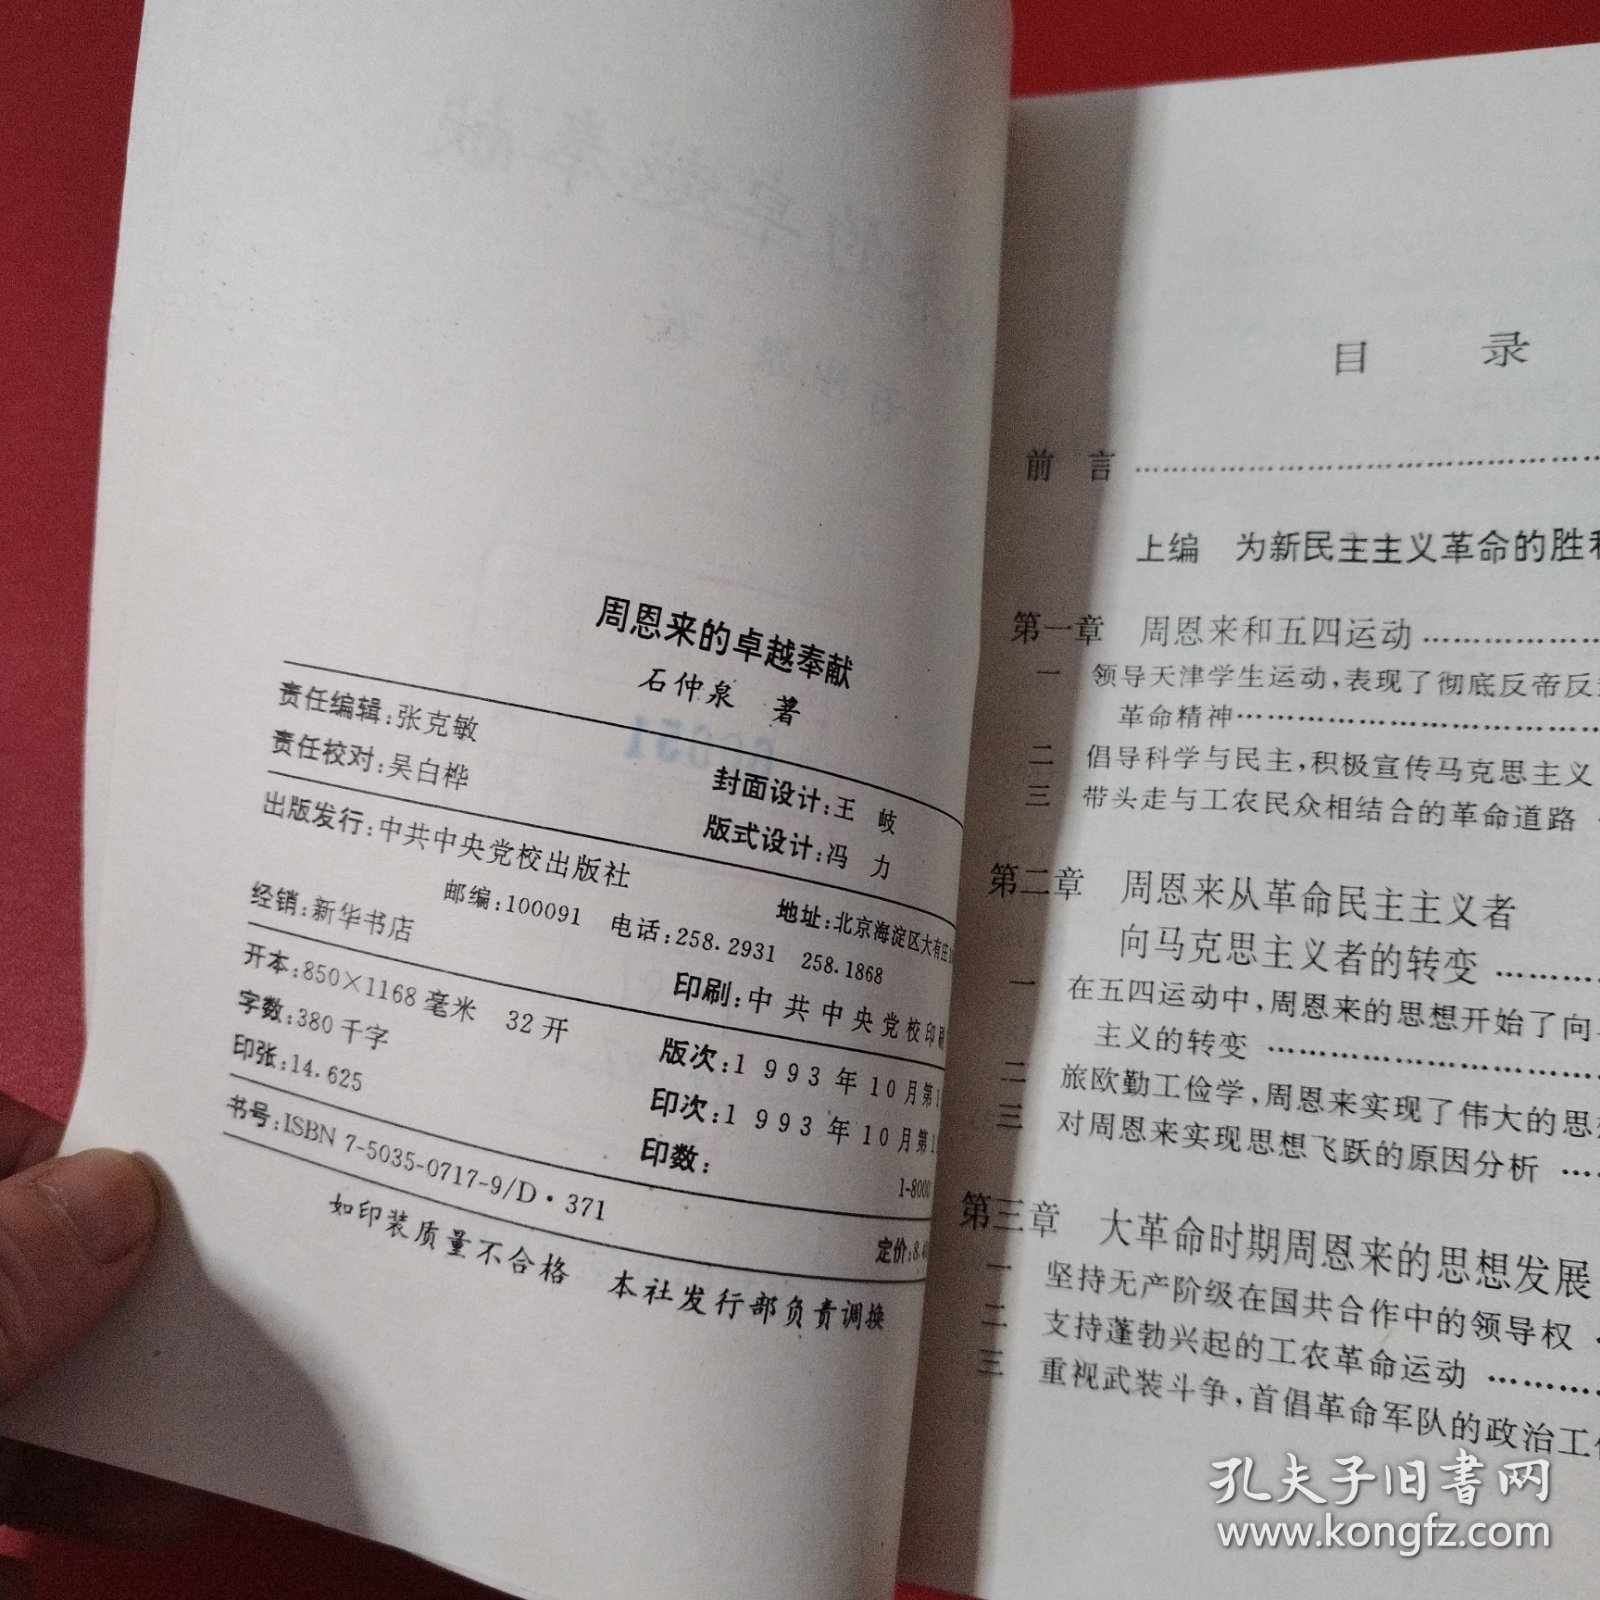 周恩来的卓越奉献
石仲泉 著
责任编辑:张克敏
责任校对:吴白桦
封面设计:王 岐
版式设计:冯 力
出版发行:中共中央党校出版社
地址:北京海淀区大有庄
邮编:100091 电话:258.2931 258.1868
经销:新华书店
印刷:中共中央党校印刷
开本:850×1168毫米 32开
字数:380千字
印张:14.625
版次:1993年10月第1
印次:1993年10月第1
印数:
1-8000
书号:ISBN 7-5035-0717-9/D·371
定价:8.4
如印装质量不合格 本社发行部负责调换
目 录
前 言
上编 为新民主主义革命的胜利
第一章 周恩来和五四运动
一 领导天津学生运动,表现了彻底反帝反
革命精神
二 倡导科学与民主,积极宣传马克思主义
三 带头走与工农民众相结合的革命道路
第二章 周恩来从革命民主主义者
向马克思主义者的转变
一 在五四运动中,周恩来的思想开始了向
主义的转变
二 旅欧勤工俭学,周恩来实现了伟大的思想
三 对周恩来实现思想飞跃的原因分析
第三章 大革命时期周恩来的思想发展
一 坚持无产阶级在国共合作中的领导权
二 支持蓬勃兴起的工农革命运动
三 重视武装斗争,首倡革命军队的政治工作
孔夫子旧书网
www.kongfz.com